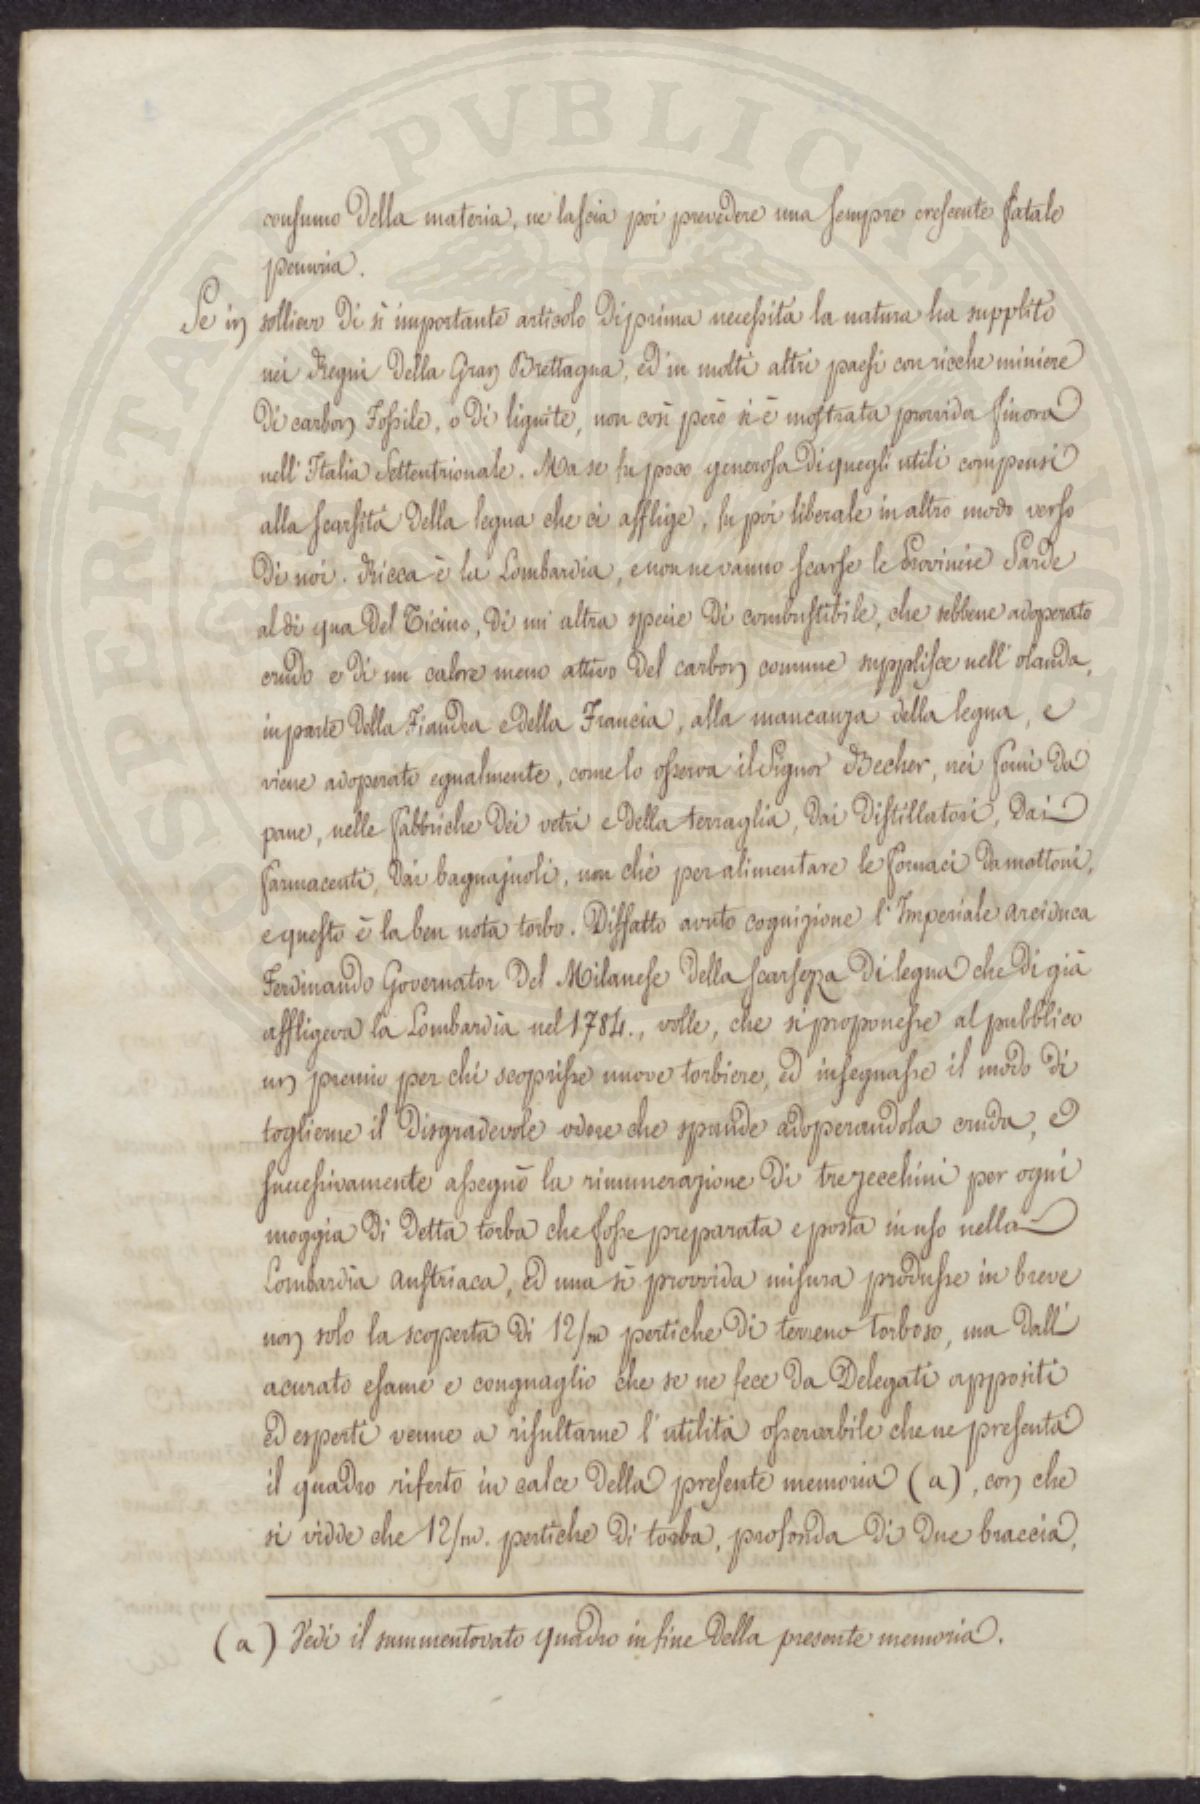 consumo della materia, ne lascia poi prevedere una sempre crescente fatale
penuria.
Se in sollievo di sì importante articolo di prima necessità la natura ha supplito
nei Regni della Gran Brettagna, ed in molti altri paesi con ricche miniere
di carbon Fossile, o di lignite, non così però si è mostrata provvida finora
nell'Italia Settentrionale. Ma se fu poco generosa di quegli utili compensi
alla scarsità della legna che ci afflige, fu poi liberale in altro modo verso
di noi. Ricca è la Lombardia, e non ne vanno scarse le Provincie Sarde
al di qua del Ticino, di un altra specie di combustibile, che sebbene adoperato
crudo e di un calore meno attivo del carbon comune supplisce nell'olanda,
in parte della Fiandra e della Francia, alla mancanza della legna, e
viene adoperato egualmente, come lo osserva il Signor Becher, nei forni da
pane, nelle fabbriche dei vetri e della terraglia, dai distillatori, dai
farmacenti, dai bagnajuoli, non chè per alimentare le fornaci da mattoni,
e questo è la ben nota torbo. Diffatto avuto cognizione l'Imperiale arciduca
Ferdinando Governator del Milanese della scarsezza di legna che di già
affligeva la Lombardia nel 1784., volle, che si proponesse al pubblico
un premio per chi scoprisse nuove torbiere, ed insegnasse il modo di
toglierne il disgradevole odore che spande adoperandola cruda, e
successivamente assegnò la rimunerazione di tre zecchini per ogni
moggia di detta torba che fosse preparata e posta in uso nella
Lombardia austriaca, ed una sì provvida misura produsse in breve
non solo la scoperta di 12/m pertiche di terreno torboso, ma dall'
acurato esame e conguaglio che se ne fece da Delegati appositi
ed esperti venne a risultarne l'utilità osservabile che ne presenta
il quadro riferto in calce della presente memoria (a), con che
si vidde che 12/m. pertiche di torba, profonda di due braccia,
(a) Vedi il summentovato quadro in fine della presente memoria.
PVBLICHE